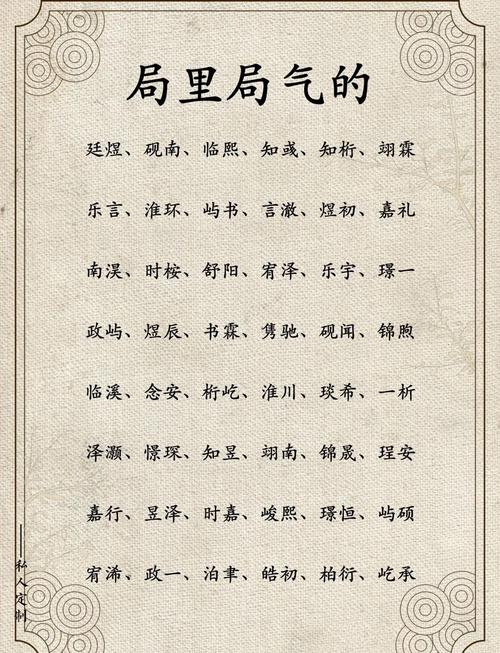 局里局气的
廷煜、砚南、临熙、知彧、知桁、翊霖
乐言、淮环、屿书、言澈、煜初、嘉礼
南淏、时桉、舒阳、宥泽、乐宇、璟一
政屿、煜辰、书霖、隽驰、砚闻、锦煦
临溪、念安、桁屹、淮川、琰希、一析
泽灏、憬琛、知昱、翊南、锦晟、珵安
嘉行、昱泽、时嘉、峻熙、璟恒、屿硕
宥浠、政一、泊聿、皓初、柏衍、屹承
——私人定制